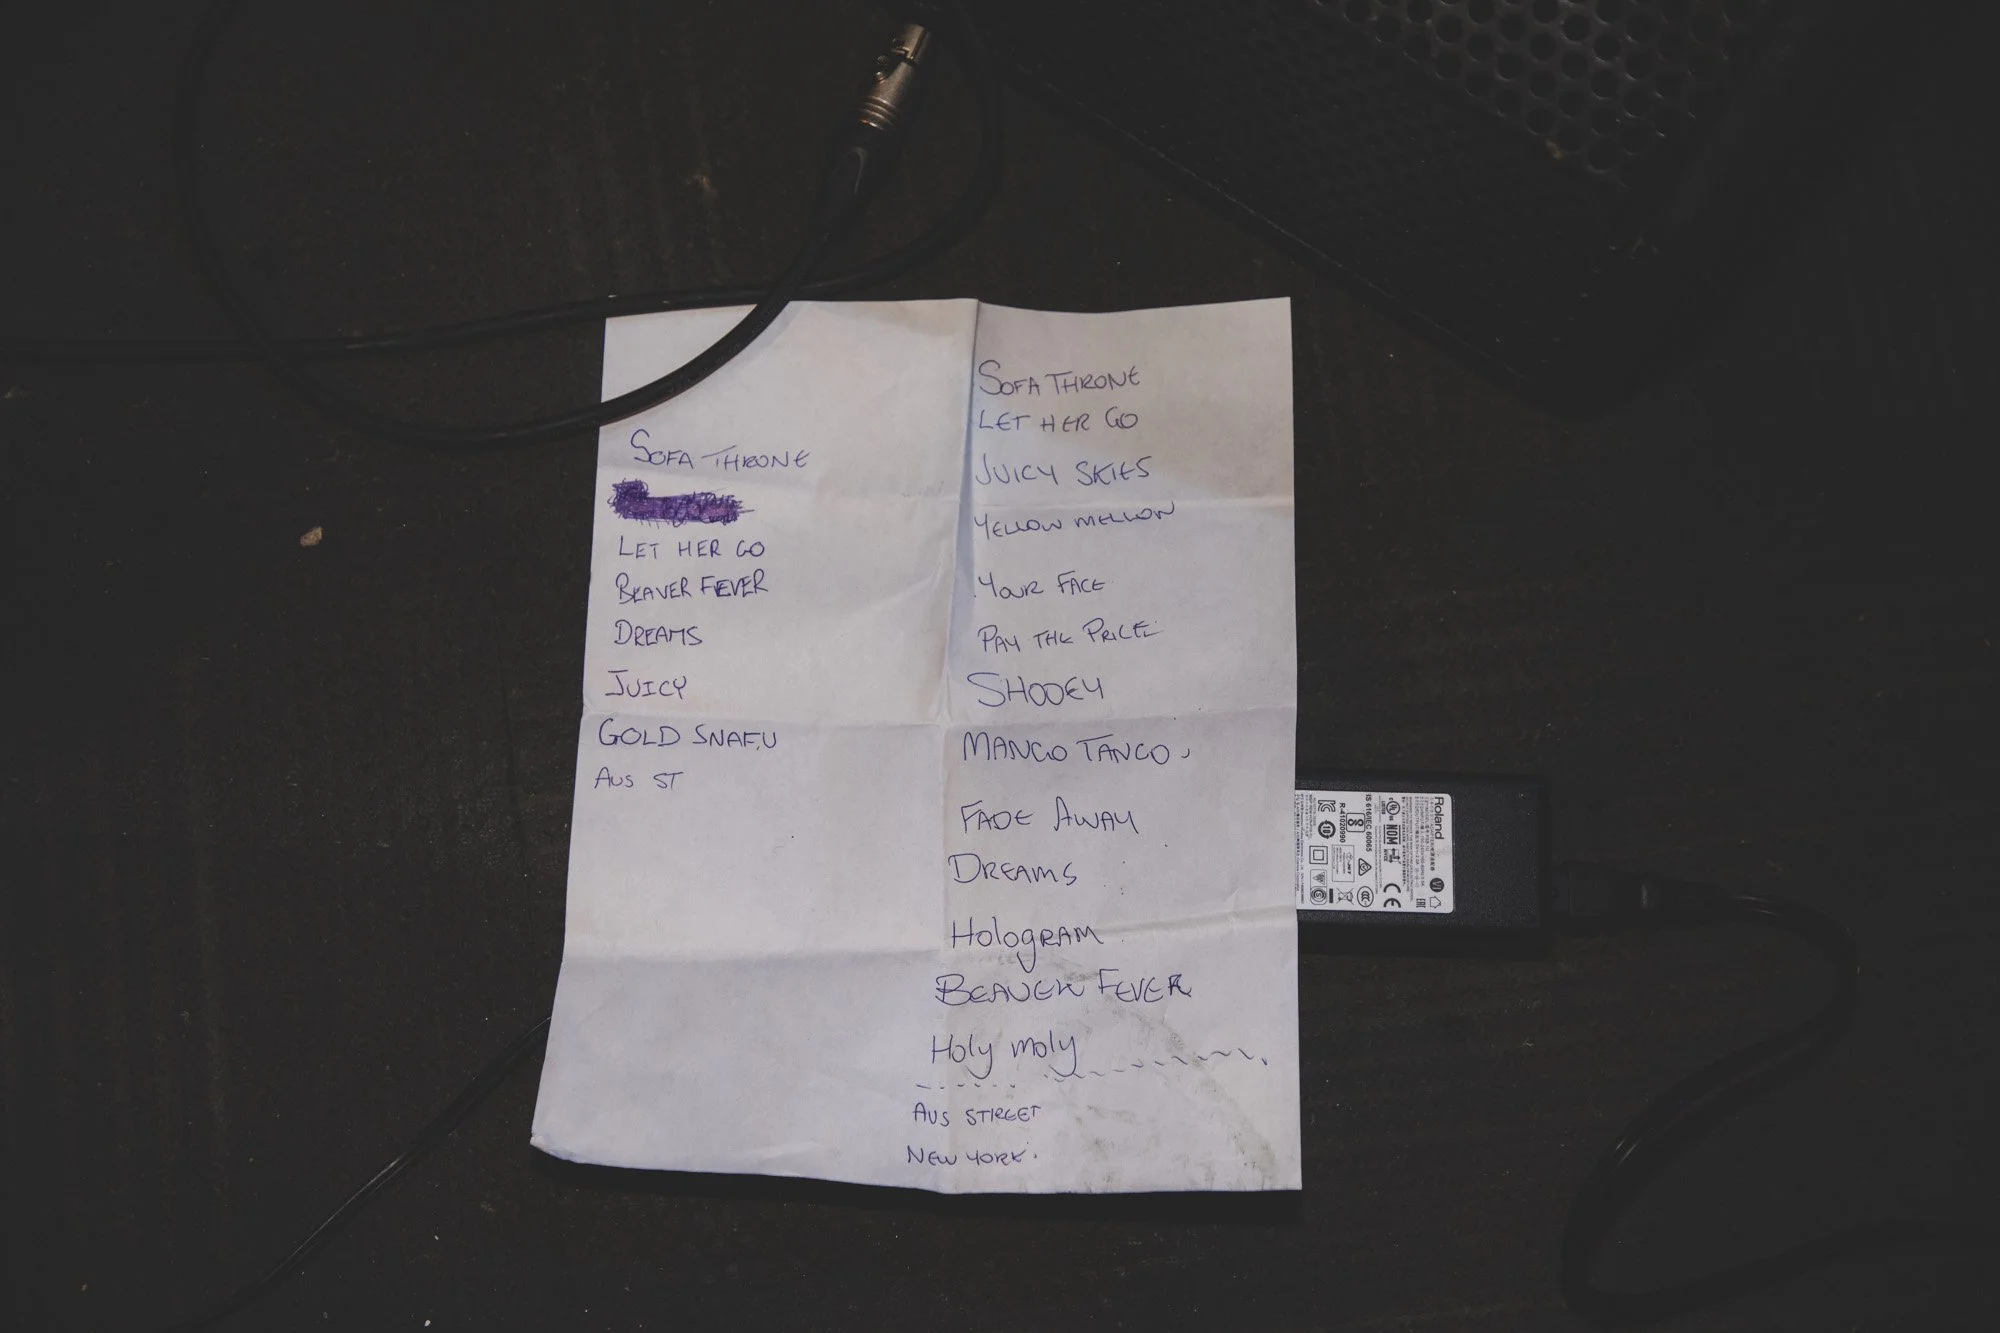 SOFA THRONE
LET HER GO
BEAVER FEVER
DREAMS
JUICY
GOLD SNAFU
AUS ST
SOFA THRONE
LET HER GO
JUICY SKIES
YELLOW MELLOW
YOUR FACE
PAY THE PRICE
SHOOEY
MANGO TANGO
FADE AWAY
DREAMS
HologRAM
BEAVER FEVER
Holy moly
AUS STREET
NEW YORK.
Roland
IS 616/IEC 60065
R-41020990